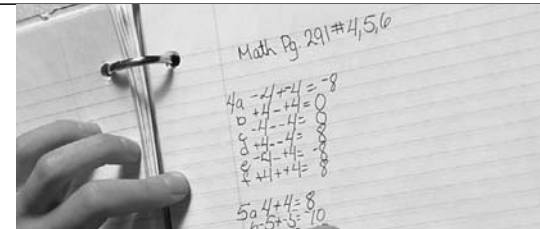 Math Pg. 291 #4,5,6
4a -4+-4= -8
b +4-+4= 0
c -4--4= 0
d +4--4= 8
e -4-+4= -8
f +4++4= 8
5a 4+4= 8
b -5+-5= -10